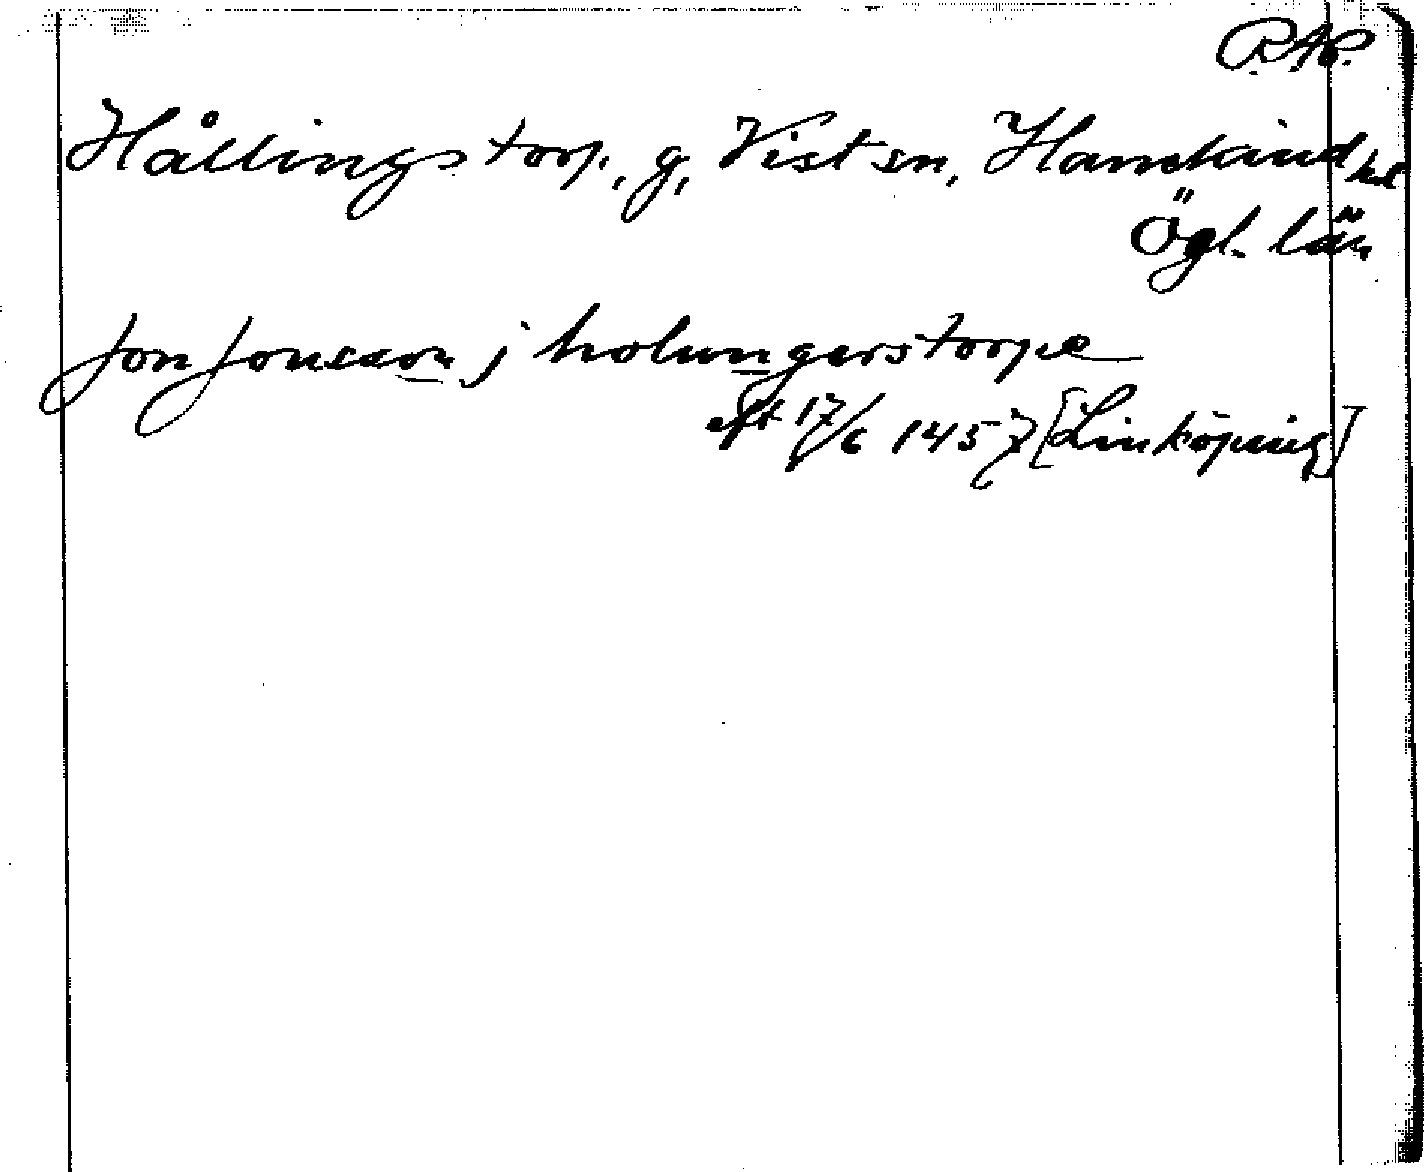 RAP.
Hållingstorp, g, Vist sn, Hanekind hd
Ögl. län
Jon Jonsson j holungerstorpe
eft 17/6 1457 [Linköping]